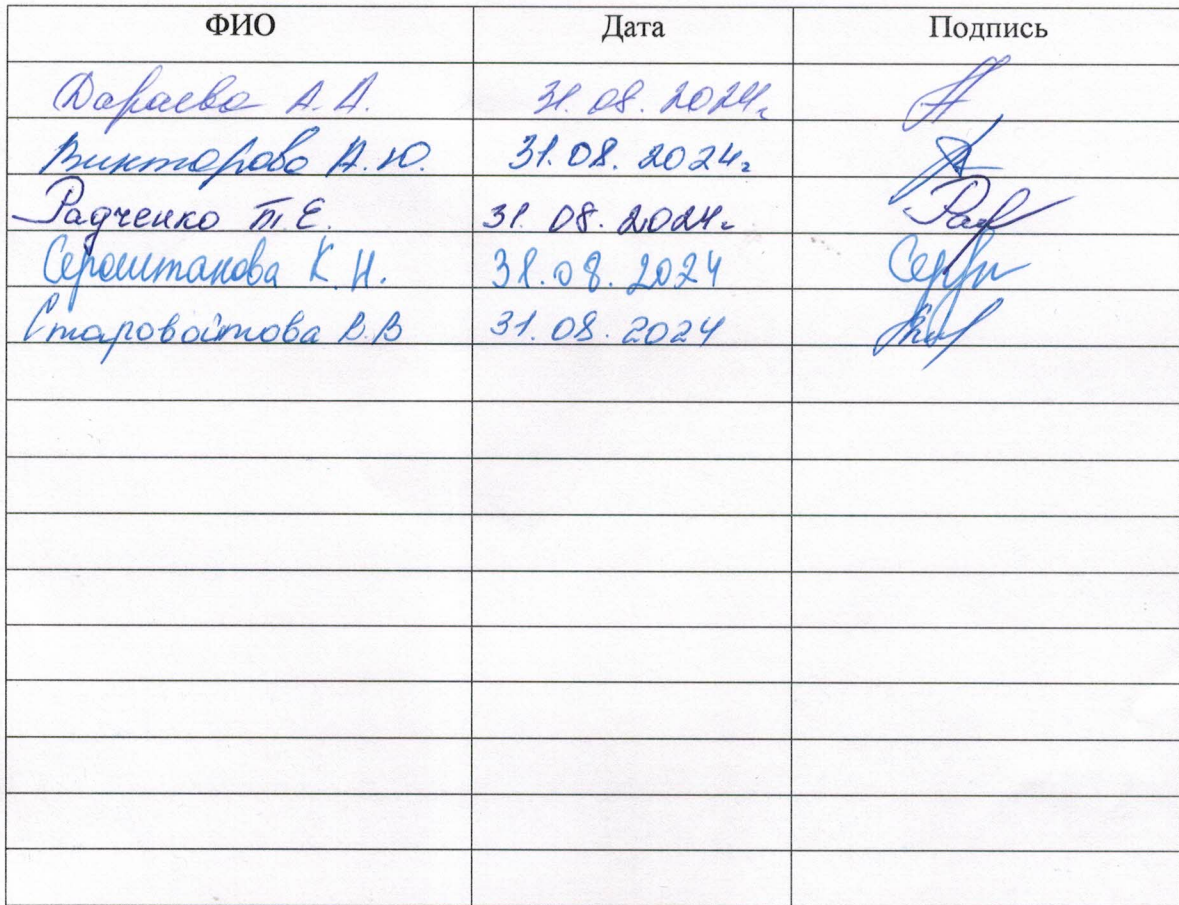 ФИО Дата Подпись
Дараева А.А. 31.08.2024г
Викторова А.Ю. 31.08.2024г
Радченко Т.Е. 31.08.2024г
Сероштанова К.Н. 31.08.2024
Старовойтова В.В 31.08.2024